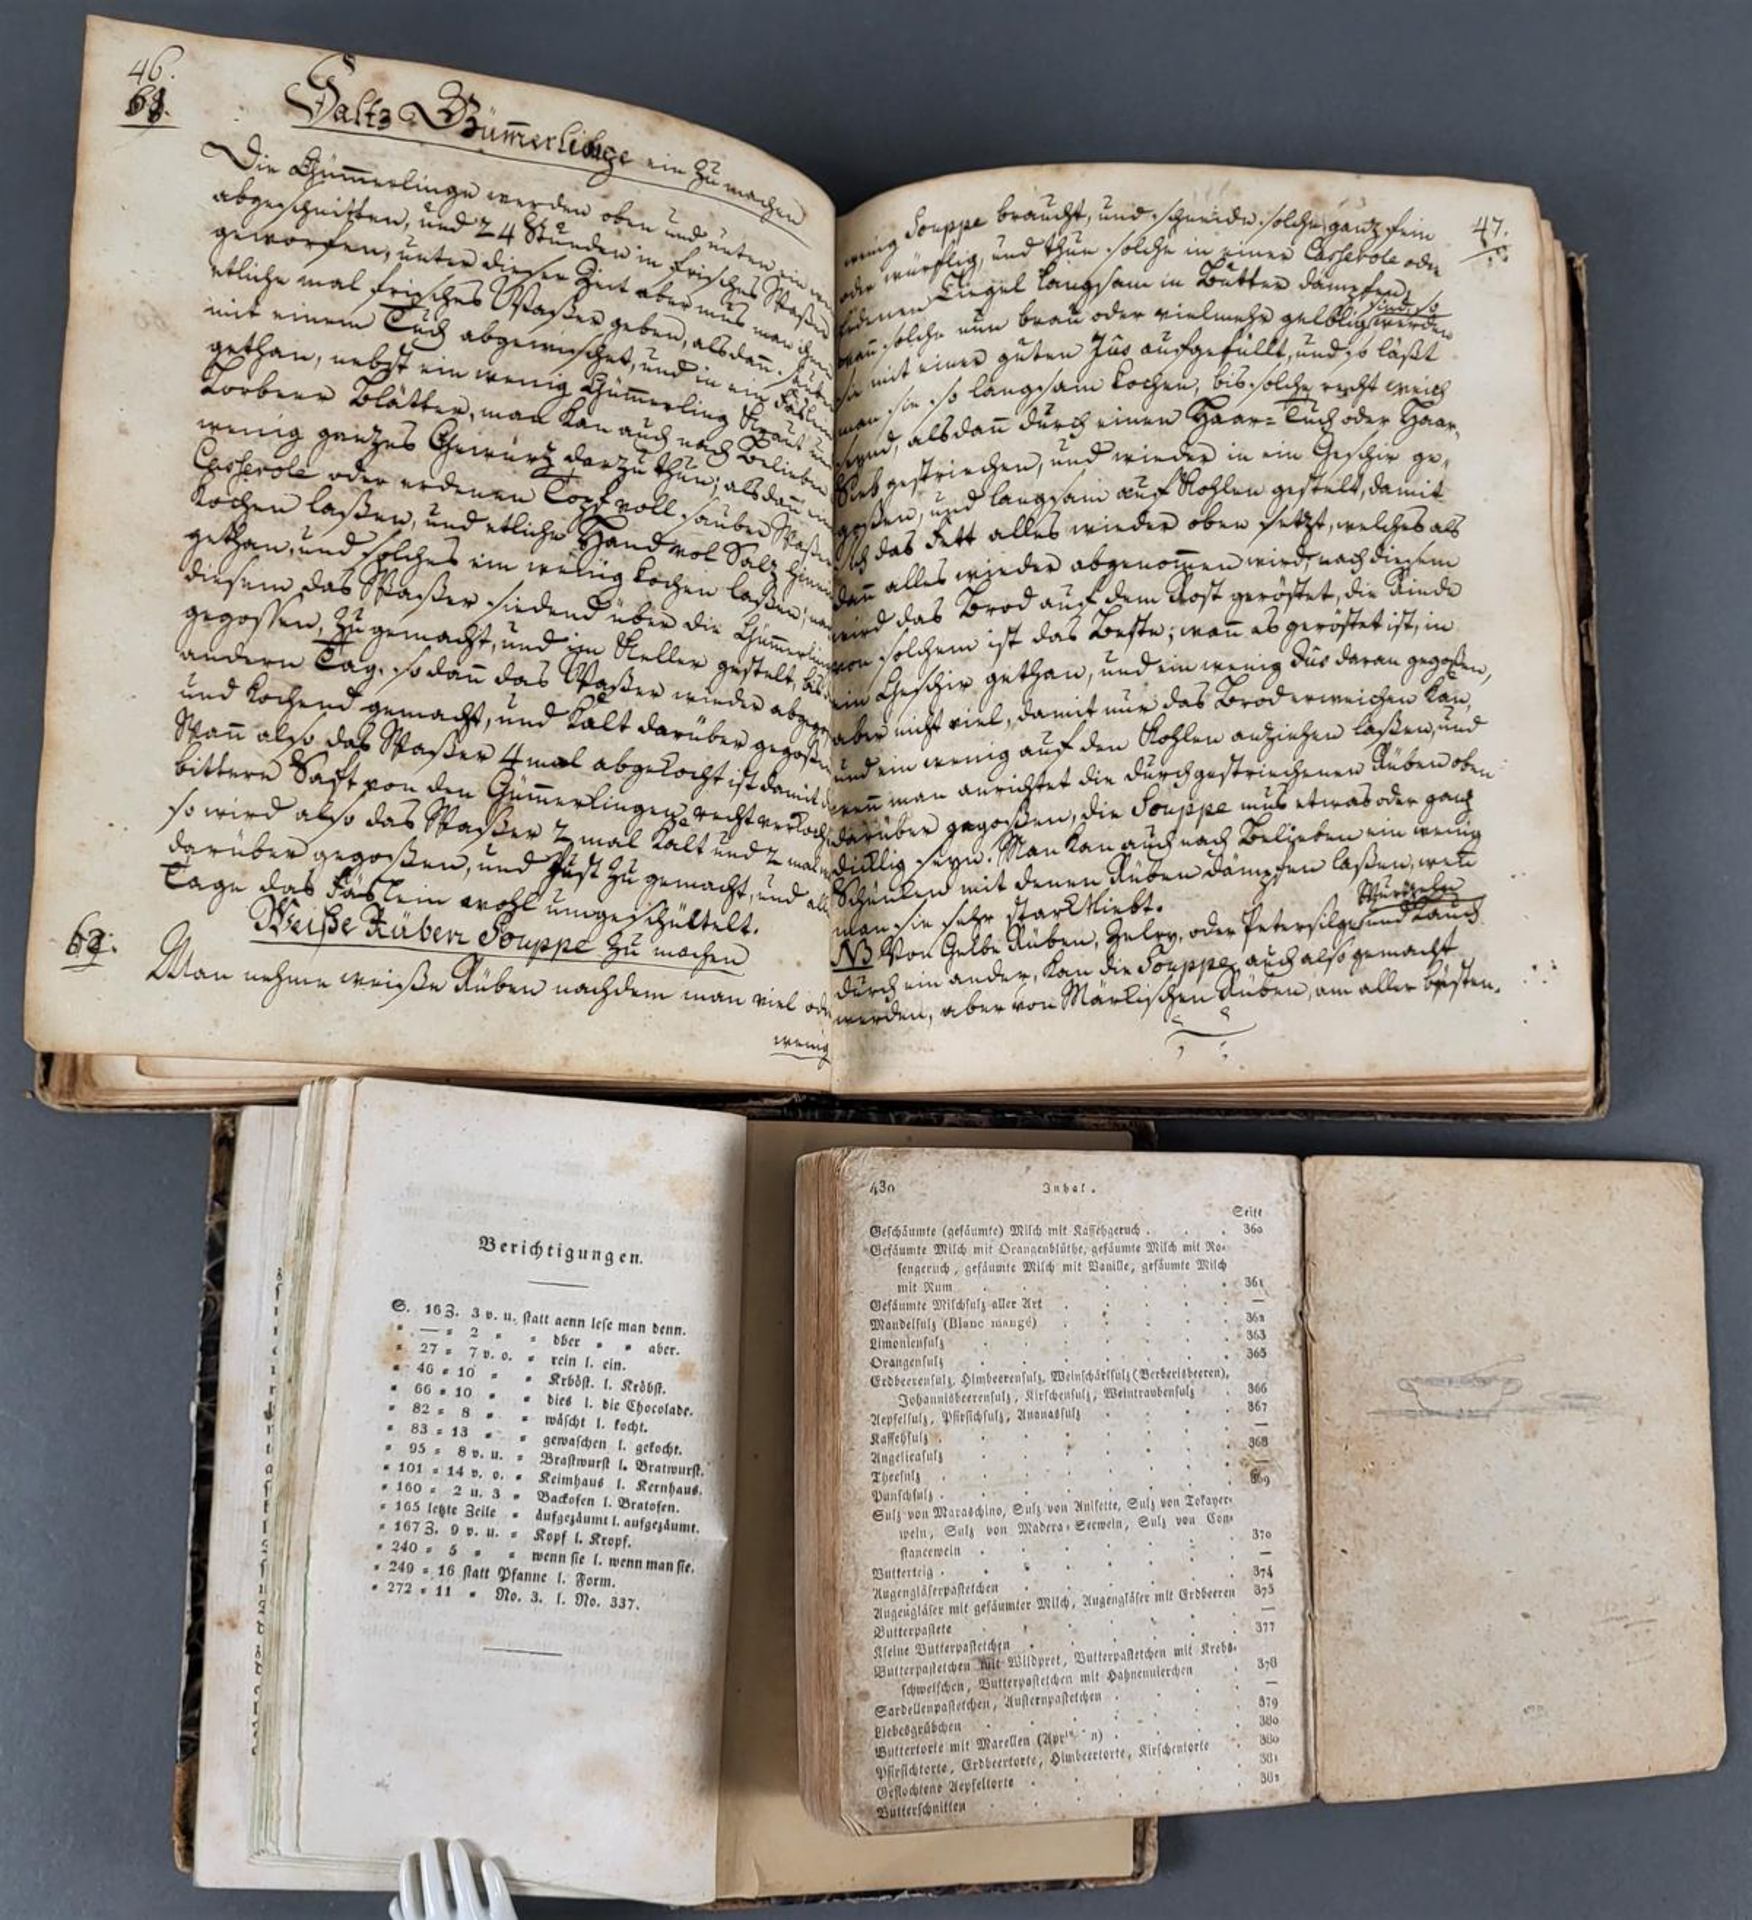 46.
Saltz Gümerlinge ein zu machen
Die Gümerlinge werden oben und unten ein
abgeschnitten, und 24 Stunden in frisches Waßer
geworfen, unter dieser Zeit aber mus man ihnen
etliche mal frisches Waßer geben, alsdan sauber
mit einem Tuch abgewischet, und in ein Fäslein
gethan, nebst ein wenig Gümerling Kraut und
Lorbeer Blätter, man kan auch nach Belieben
wenig ganzes Gewürtz darzu thun; alsdan ein
Casserole oder erdenen Topf voll sauber Waßer
kochen laßen, und etliche Hand vol Salz hinein
gethan, und solches ein wenig kochen laßen; nach
diesem das Waßer siedend über die Gümerlinge
gegossen, zugemacht, und im Keller gestelt, bis
andern Tag. so dan das Waßer wieder abgegoßen
und kochend gemacht, und kalt darüber gegoßen
Wan also das Waßer 4 mal abgekocht ist damit
bittere Saft von den Gümerlingen recht verkocht
so wird also das Waßer 2 mal kalt und 2 mal
darüber gegoßen, und fest zu gemacht, und alle
Tage das Fäslein wohl umgeschüttelt.
62.
Weiße Rüben Souppe zu machen
Man nehme weiße Rüben nachdem man viel oder
wenig
47.
wenig Souppe braucht, und schneide solche ganz fein
oder würflig, und thue solche in einer Casserole oder
erdenen Tiegel langsam in Butter dämpfen,
wan solche nun braun oder vielmehr gelblig werden
sind, so
sie mit einer guten Jus aufgefüllt, und so läßt
man sie so langsam kochen, bis solche recht weich
seynd, alsdan durch einen Haar=Tuch oder Haar,
Sieb gestrichen, und wieder in ein Geschir ge,
goßen, und langsam auf Kohlen gestelt, damit
sich das Fett alles wieder oben setzt, welches als
dan alles wieder abgenomen wird, nach diesem
wird das Brod auf dem Rost geröstet, die Rinde
von solchem ist das Beste; wan es geröstet ist, in
ein Geschir gethan, und ein wenig Jus daran gegoßen,
aber nicht viel, damit nur das Brod erweichen kan,
und ein wenig auf den Kohlen anziehen laßen, und
wen man anrichtet die durchgestrichenen Rüben oben
darüber gegoßen, die Souppe mus etwas oder ganz
dicklig seyn. Man kan auch nach Belieben ein wenig
mit denen Rüben dämpfen laßen, wen
man sie sehr stark liebt.
Wurzeln
NB Von Gelbe Rüben, Zelry, oder Petersilge und Lauch
durch ein ander, kan die Souppe auch also gemacht
werden, aber von Märkischen Rüben, am aller besten.
Berichtigungen.
S. 16 Z. 3 v. u. statt aenn lese man denn.
" — " 2 " " ober " " aber.
" 27 " 7 v. o. " rein l. ein.
" 46 " 10 " " Krböst. l. Kröbst.
" 66 " 10 " " dies l. die Chocolade.
" 82 " 8 " " wäscht l. kocht.
" 83 " 13 " " gewaschen l. gekocht.
" 95 " 8 v. u. " Brastwurst l. Bratwurst.
" 101 " 14 v. o. " Keimhaus l. Kernhaus.
" 160 " 2 u. 3 " Backofen l. Bratofen.
" 165 letzte Zeile " äufgezäumt l. aufgezäumt.
" 167 Z. 9 v. u. " Kopf l. Kropf.
" 240 " 5 " " wenn sie l. wenn man sie.
" 249 " 16 statt Pfanne l. Form.
" 272 " 11 " No. 3. l. No. 337.
430 Inhal.
Seite
Geschäumte (gesäumte) Milch mit Kaffehgeruch . . . 360
Gesäumte Milch mit Orangenblüthe, gesäumte Milch mit Ro-
sengeruch, gesäumte Milch mit Vanille, gesäumte Milch
mit Rum . . . 361
Gesäumte Milchsulz aller Art . . . —
Mandelsulz (Blanc mangé) . . . 362
Limoniensulz . . . 363
Orangensulz . . . 365
Erdbeerensulz, Himbeerensulz, Weinschärlsulz (Berberisbeeren),
Johannisbeerensulz, Kirschensulz, Weintraubensulz . 366
Aepfelsulz, Pfirsichsulz, Ananassulz . . . 367
Kaffehsulz . . . —
Angelicasulz . . . 368
Theesulz . . . —
Punschsulz . . . 369
Sulz von Maraschino, Sulz von Anisette, Sulz von Tokayer-
wein, Sulz von Madera-Secwein, Sulz von Con-
stancewein . . . 370
Butterteig . . . —
Augengläserpastetchen . . . 374
Augengläser mit gesäumter Milch, Augengläser mit Erdbeeren 375
Butterpastete . . . —
Kleine Butterpastetchen . . . 377
Butterpastetchen mit Wildpret, Butterpastetchen mit Krebs-
schweifchen, Butterpastetchen mit Hahnennierchen . 378
Sardellenpastetchen, Austernpastetchen . . . —
Liebesgrübchen . . . 379
Buttertorte mit Marellen . . . 380
Pfirsichtorte, Erdbeertorte, Himbeertorte, Kirschentorte . 380
Geflochtene Aepfeltorte . . . 381
Butterschnitten . . . 382